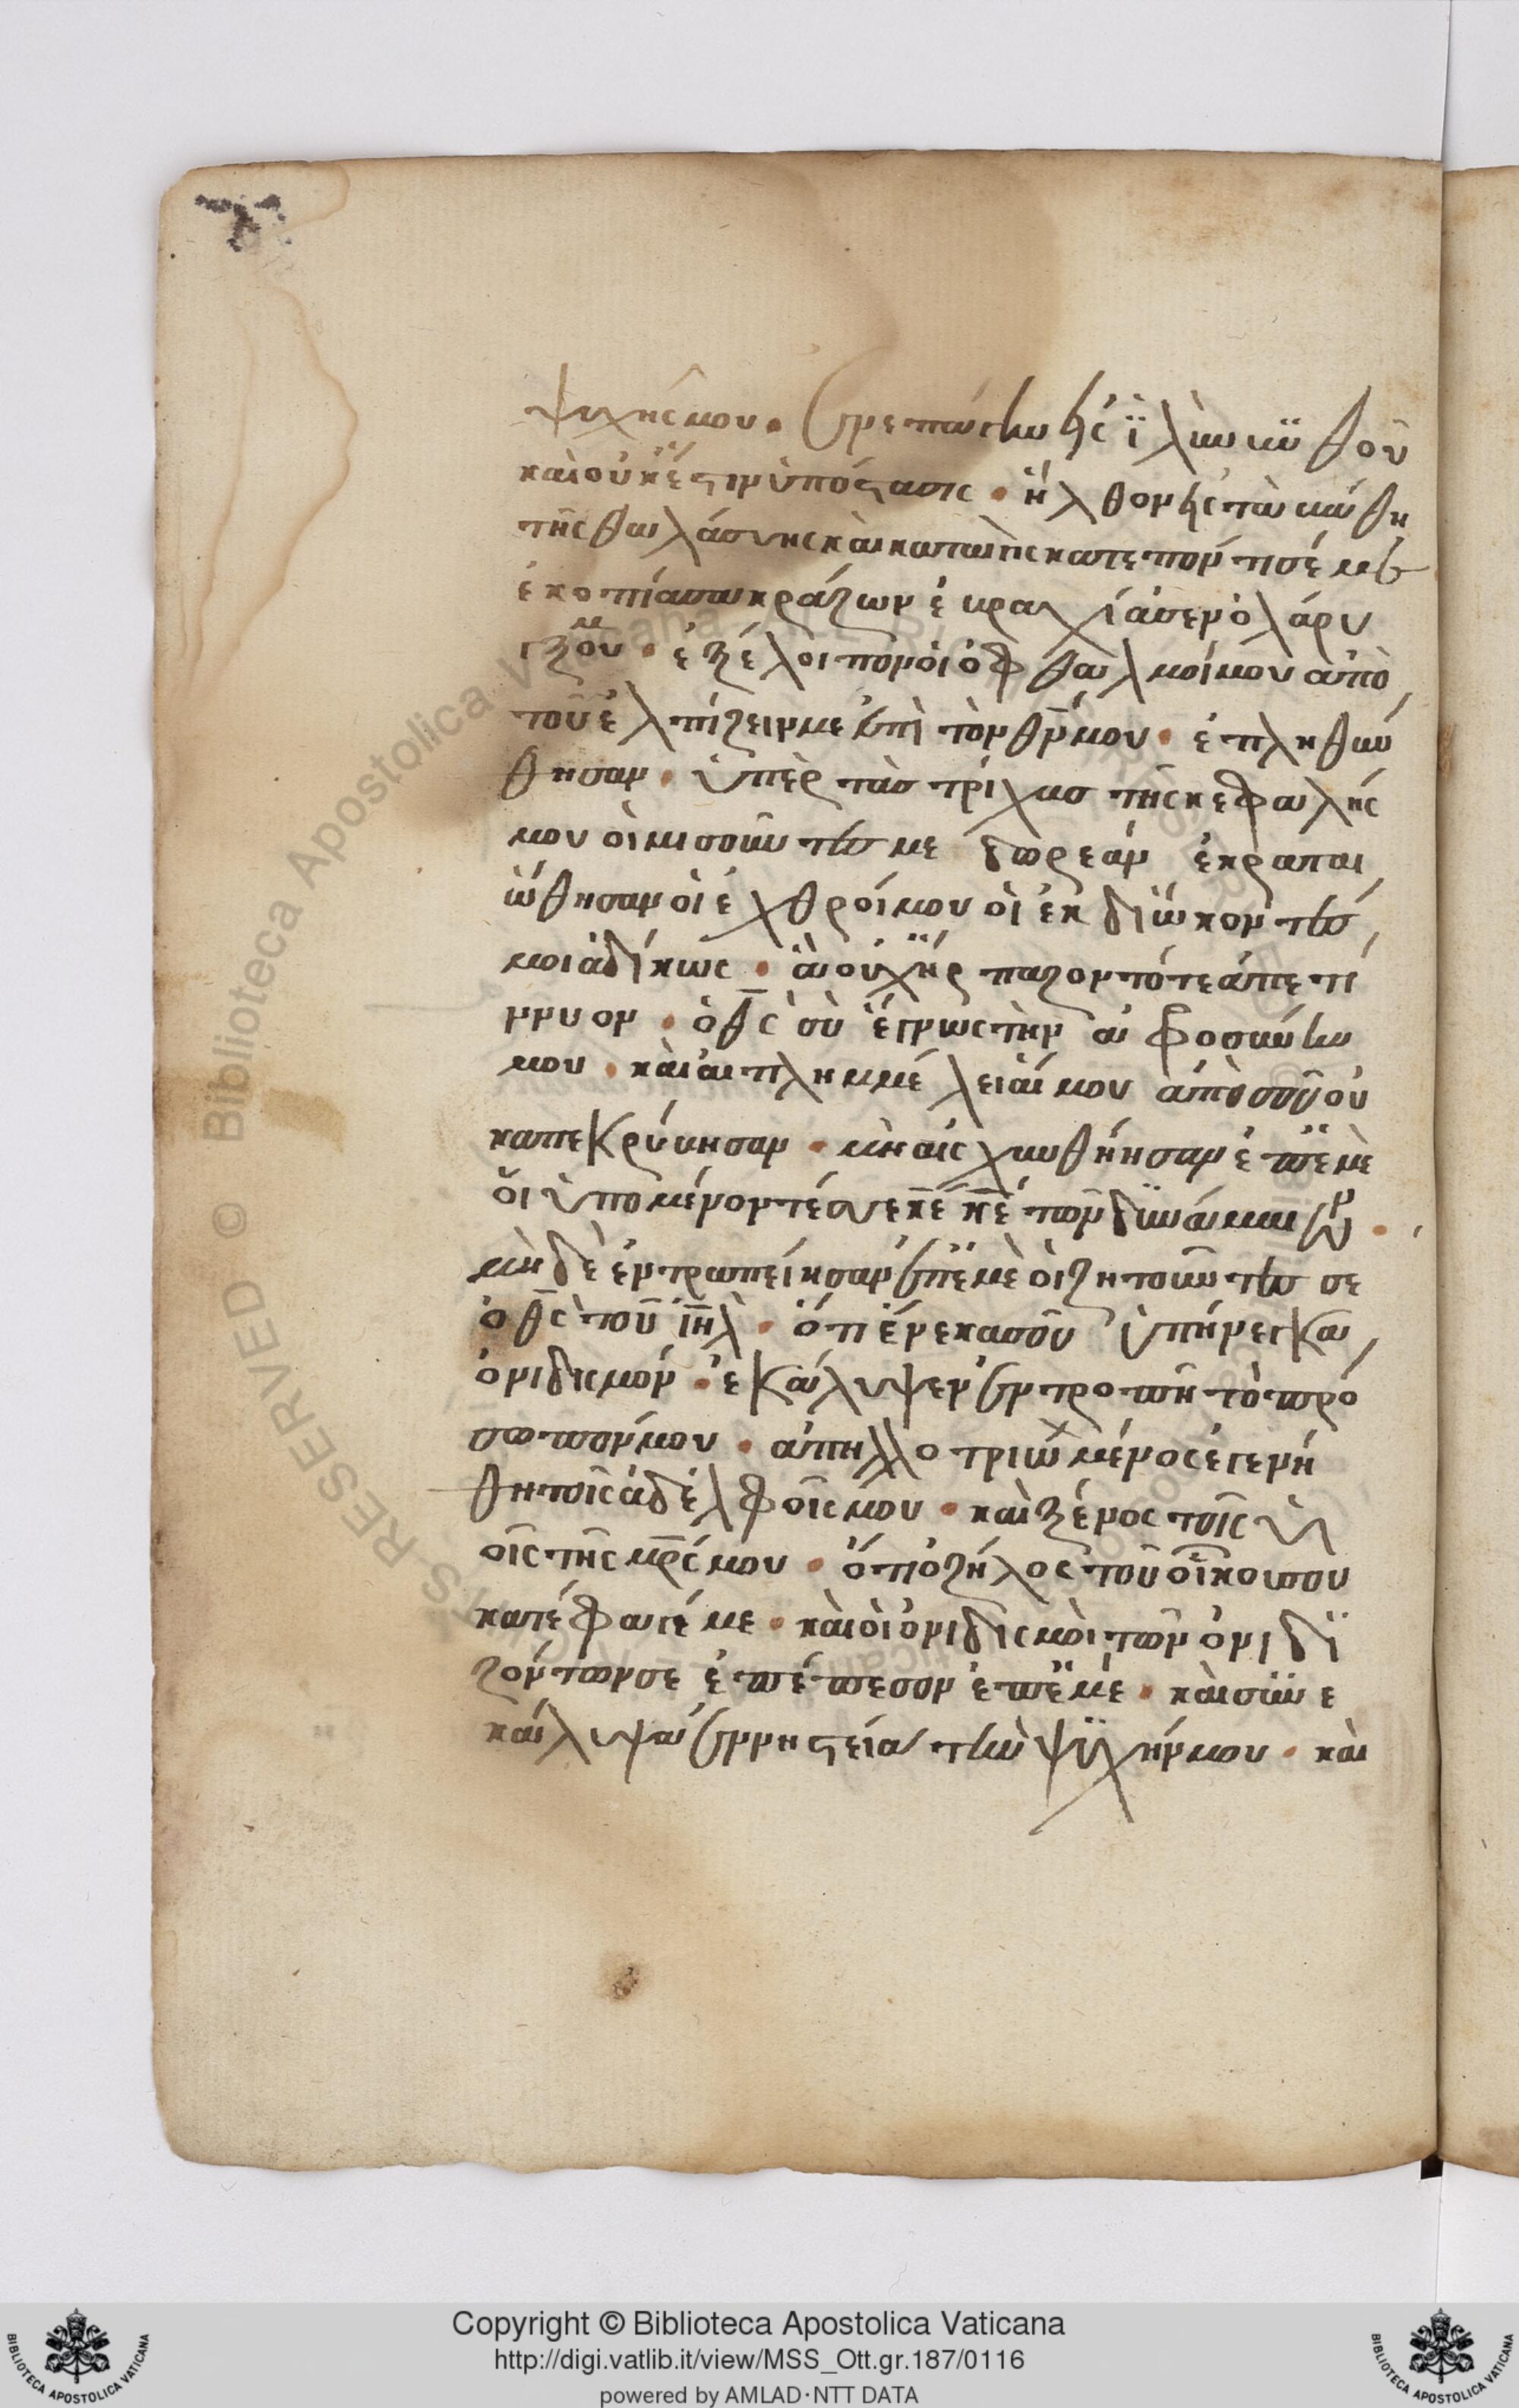 ψυχῆς μου. ἐνεπάγην εἰς ἰλὺν βυθοῦ
καὶ οὐκ ἔστιν ὑπόστασις. ἦλθον εἰς τὰ βάθη
τῆς θαλάσσης καὶ καταιγὶς κατεπόντισέ με
ἐκοπίασα κράζων ἐβραγχίασεν ὁ λάρυ
γξ μου. ἐξέλοιπον οἱ ὀφθαλμοί μου ἀπὸ
τοῦ ἐλπίζειν με ἐπὶ τὸν θν μου. ἐπληθύν
θησαν. ὑπὲρ τὰς τρίχας τῆς κεφαλῆς
μου οἱ μισοῦντές με δωρεάν ἐκραται
ώθησαν οἱ ἐχθροί μου οἱ ἐκδιώκοντές
μοι ἀδίκως. ἃ οὐχ ἥρπαζον τότε ἀπετί
ννυον. ὁ θς σὺ ἔγνως τὴν ἀφροσύνην
μου. καὶ αἱ πλημμέλειαί μου ἀπὸ σοῦ οὐ
κ ἀπεκρύβησαν. μὴ αἰσχυνθήησαν ἐπ' ἐμὲ
οἱ ὑπομένοντές σε κε κε τῶν δυνάμεων.
μὴ δὲ ἐντραπείησαν ἐπ' ἐμὲ οἱ ζητοῦντές σε
ὁ θς τοῦ ιηλ. ὅτι ἕνεκα σοῦ ὑπήνεγκα
ὀνιδισμόν. ἐκάλυψεν ἐντροπὴ τὸ πρό
σωπόν μου. ἀπηλλοτριωμένος ἐγενή
θη τοῖς ἀδελφοῖς μου. καὶ ξένος τοῖς υἱ
οῖς τῆς μρς μου. ὅτι ὁ ζῆλος τοῦ οἴκου σου
κατέφαγέ με. καὶ οἱ ὀνιδισμοὶ τῶν ὀνιδι
ζόντων σε ἐπέπεσον ἐπ' ἐμέ. καὶ συνε
κάλυψα ἐν νηστεία τὴν ψυχήν μου. καὶ
Copyright © Biblioteca Apostolica Vaticana
http://digi.vatlib.it/view/MSS_Ott.gr.187/0116
powered by AMLAD·NTT DATA